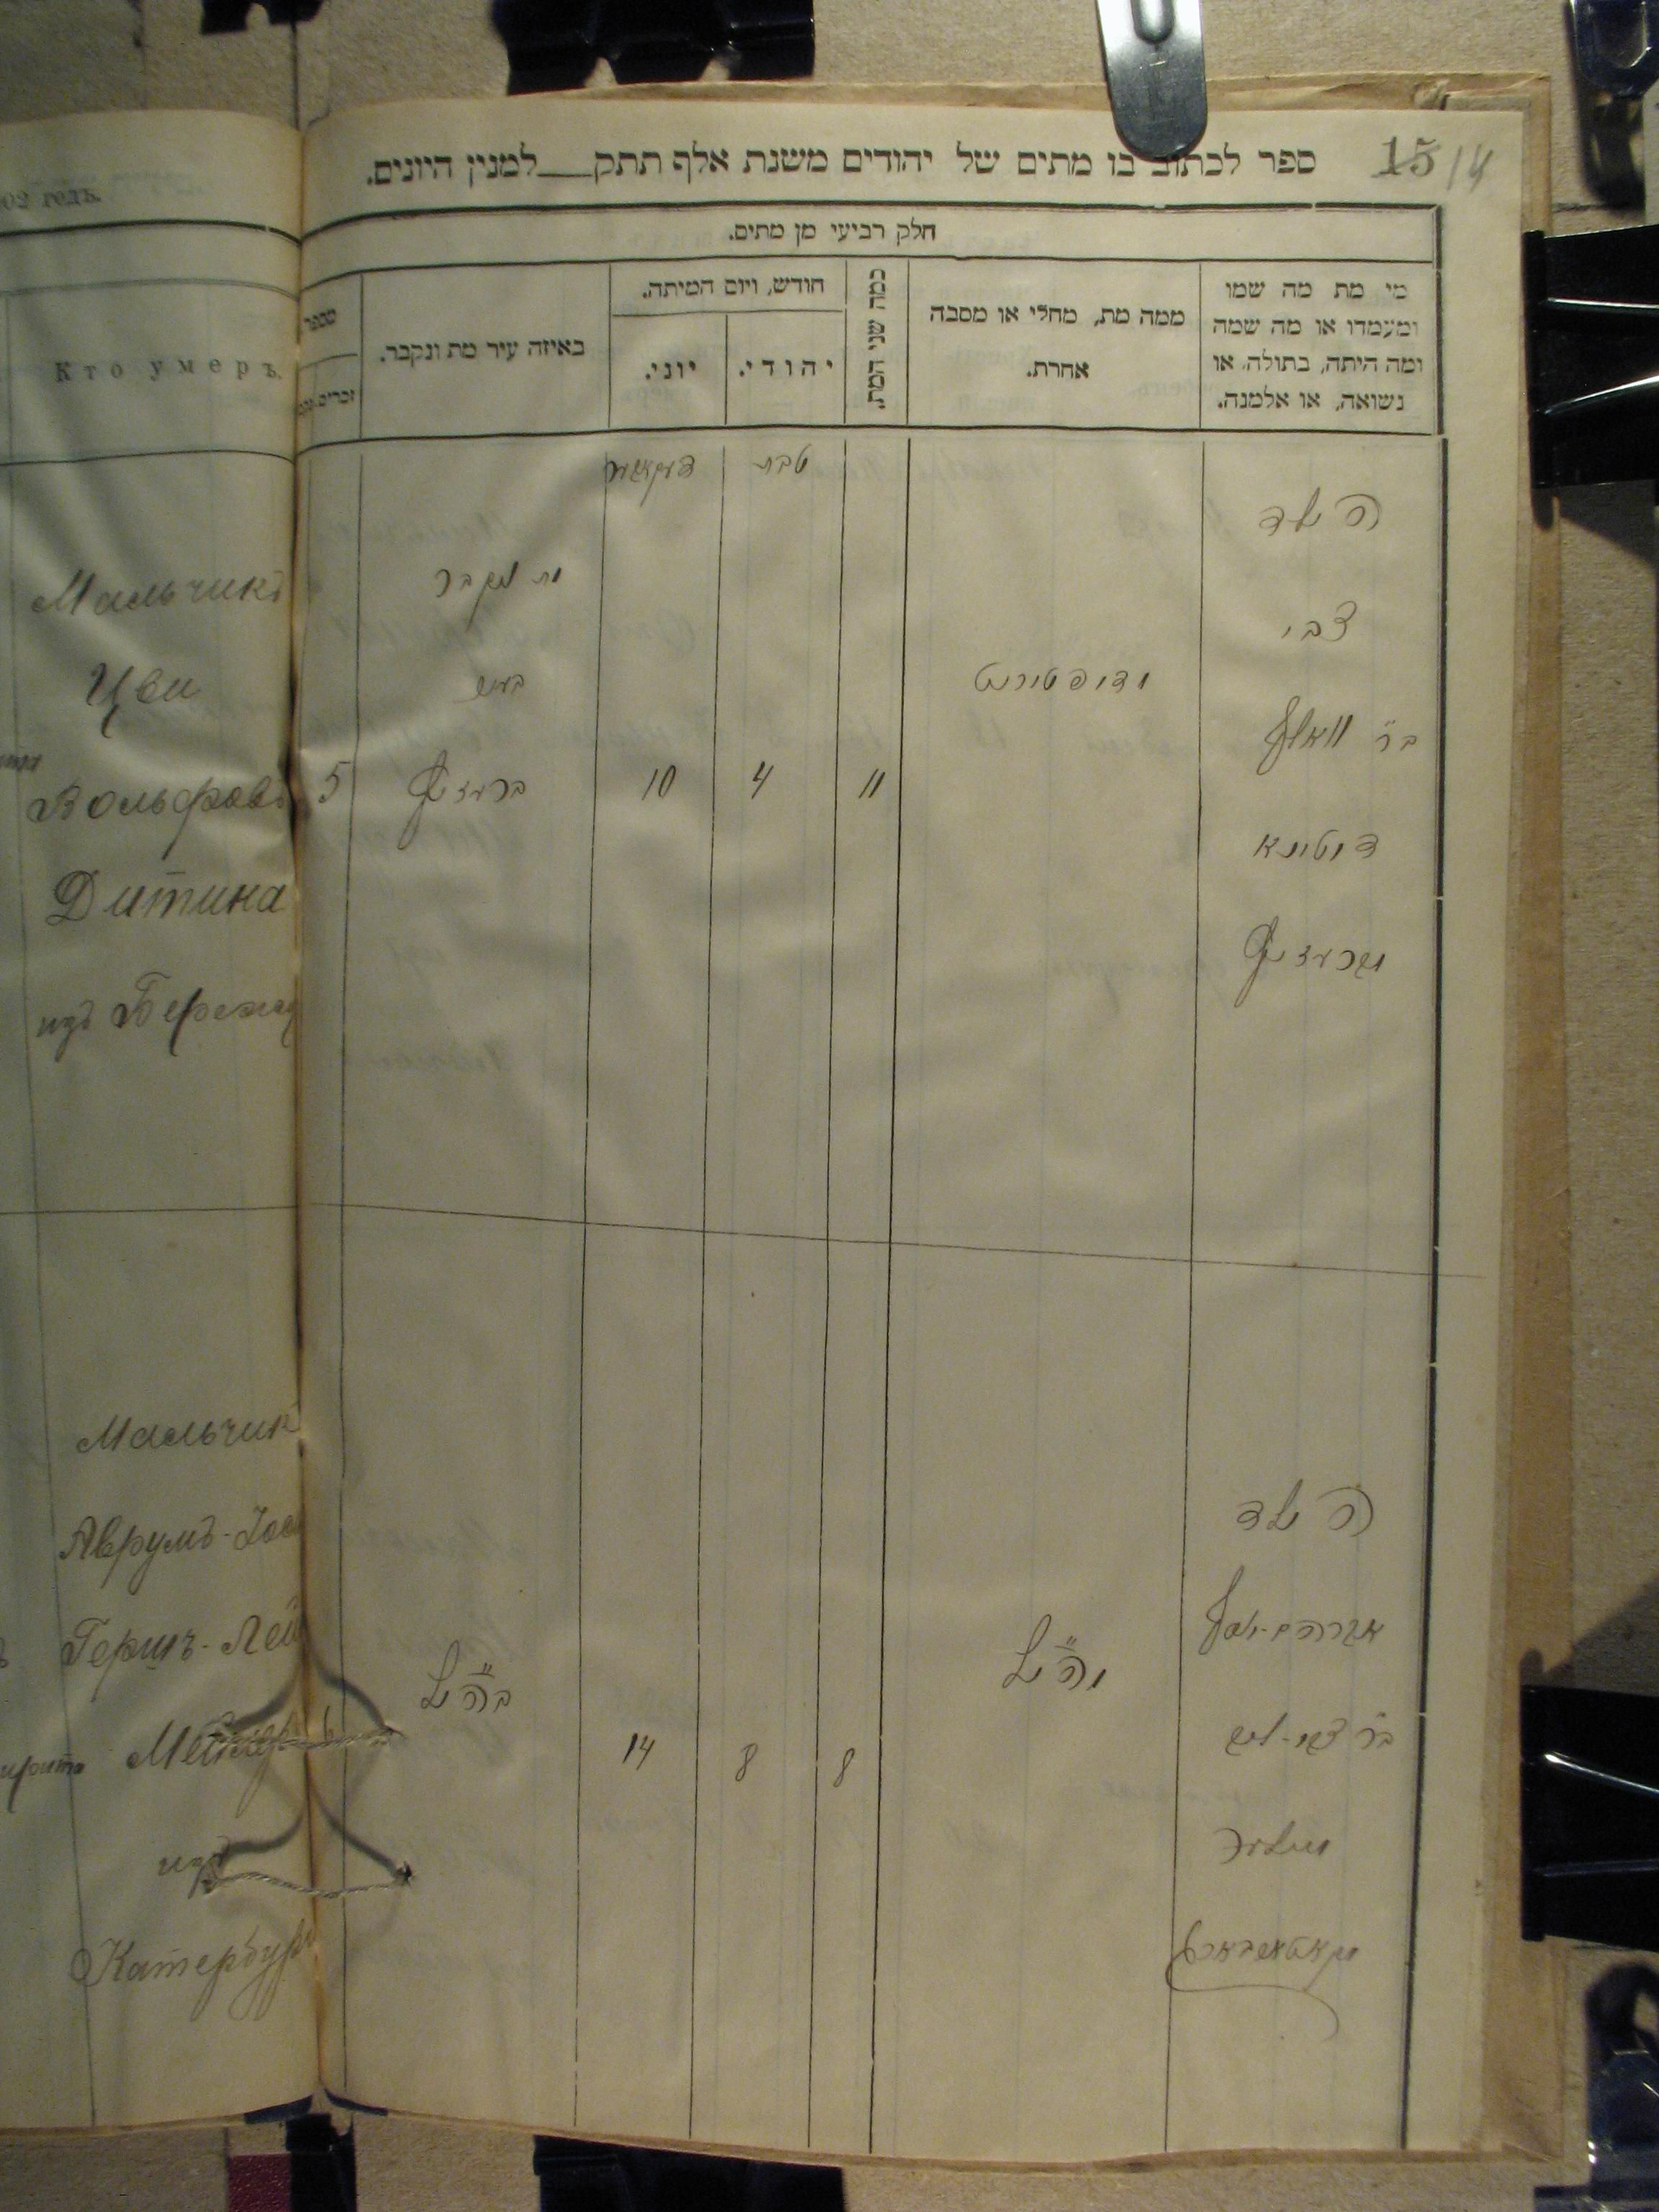 15 14
ספר לכתוב בו מתים של יהודים משנת אלף תתק__למנין היונים.
חלק רביעי מן מתים.
מי מת מה שמו
ומעמדו או מה שמה
ומה היתה, בתולה, או
נשואה, או אלמנה.
ממה מת, מחלי או מסבה
אחרת.
כמה שני המת.
חודש, ויום המיתה.
יהודי.
יוני.
באיזה עיר מת ונקבר.
מספר
זכרים
טבת
דעקאבער
הילד
צבי
ב"ר וואלף
דיטינא
11
4
10
מת ונקבר
בעיר
5
הילד
אברהם-יוסף
8
8
14
בה"ל
02 годъ.
Кто умеръ.
Мальчикъ
Цви
Вольфовъ
Дитина
изъ Бережец
Мальчик
Аврумъ-Іос
Гершъ-Лей
изъ
Катербург